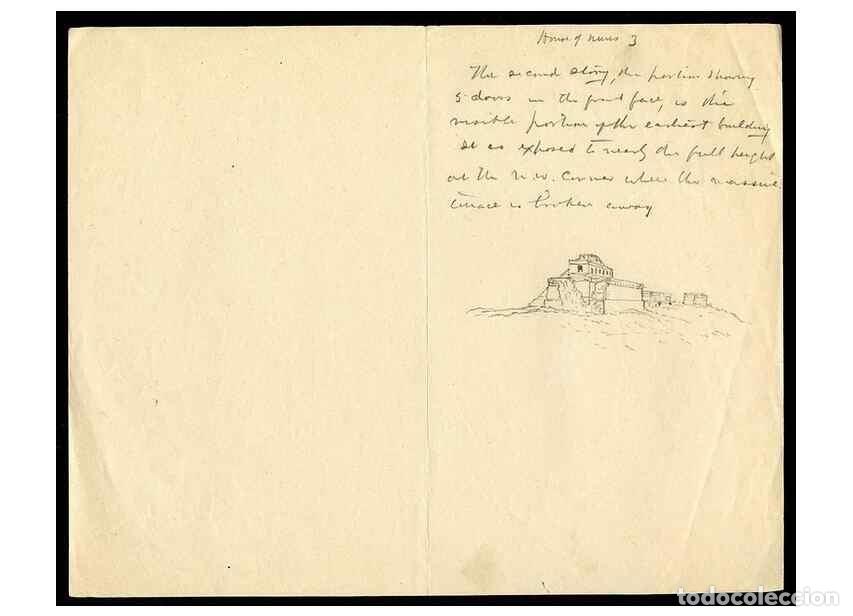 House of Nuns 3
The second story, the portion showing
5 doors in the front face, is the
visible portion of the earliest building
It is exposed to nearly the full height
at the N.W. Corner where the massive
terrace is broken away
todocoleccion